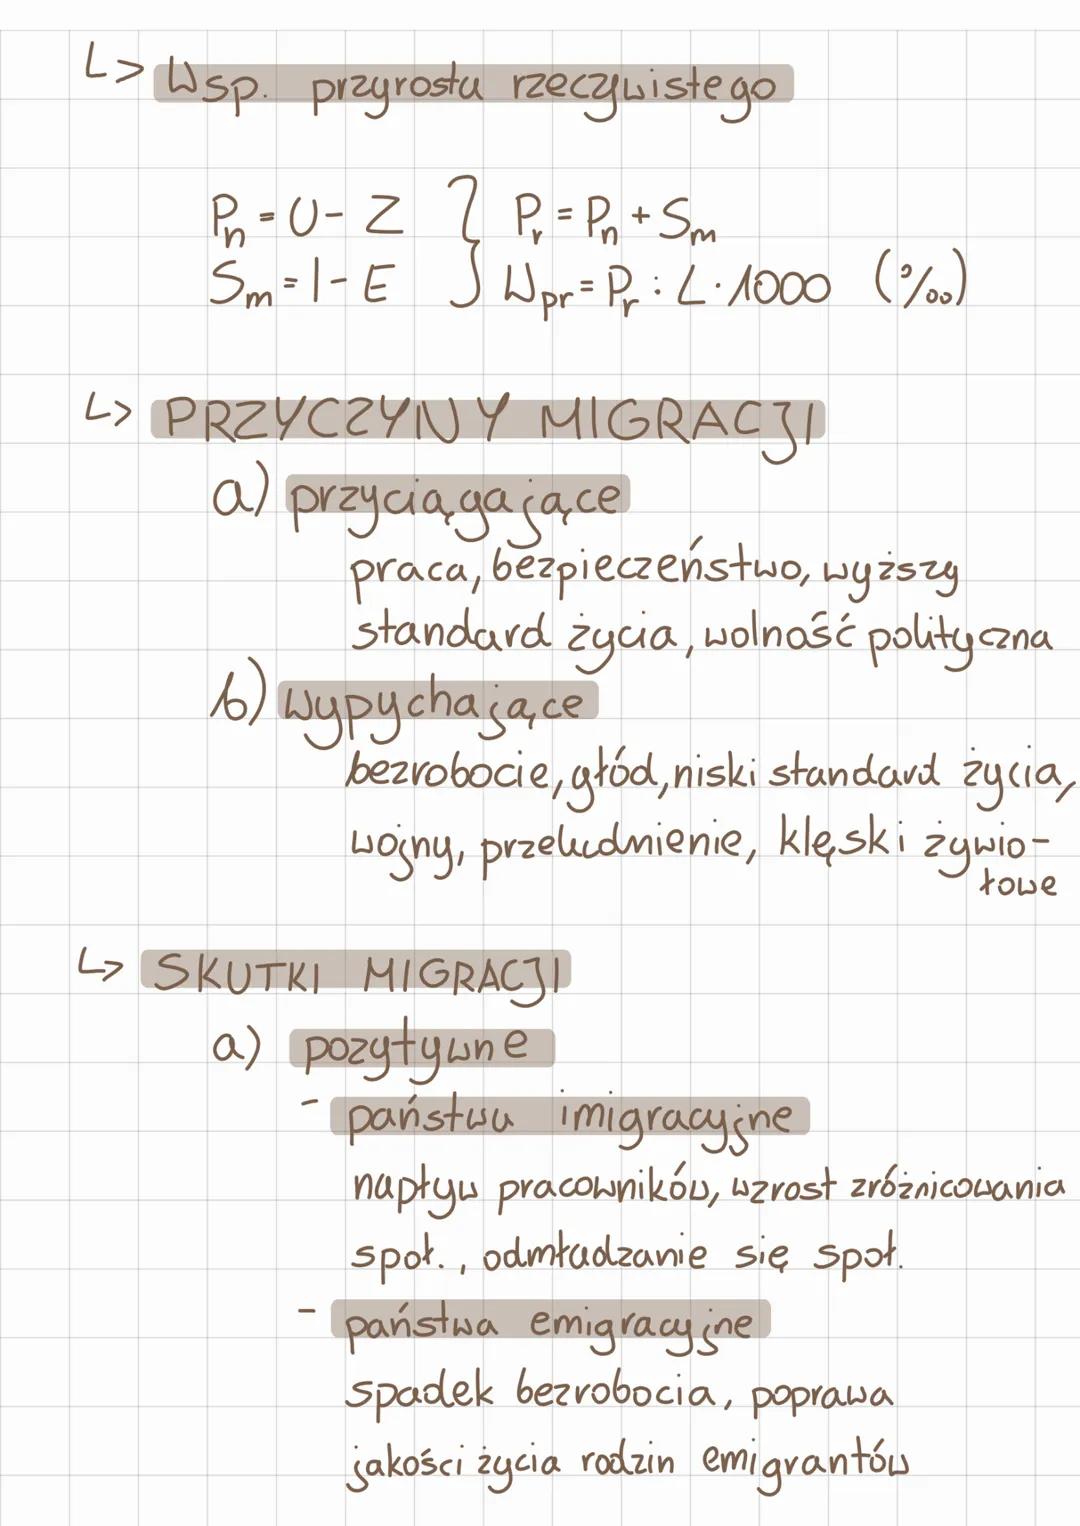 ↳ Wsp. przyrostu rzeczywistego
Pn = U - Z } Pr = Pn + Sm
Sm = I - E } Wpr = Pr : L · 1000 (‰)
↳ PRZYCZYNY MIGRACJI
a) przyciągające
praca, bezpieczeństwo, wyższy
standard życia, wolność polityczna
b) wypychające
bezrobocie, głód, niski standard życia,
wojny, przeludnienie, klęski żywio-
łowe
↳ SKUTKI MIGRACJI
a) pozytywne
- państwa imigracyjne
napływ pracowników, wzrost zróżnicowania
społ., odmładzanie się społ.
- państwa emigracyjne
spadek bezrobocia, poprawa
jakości życia rodzin emigrantów